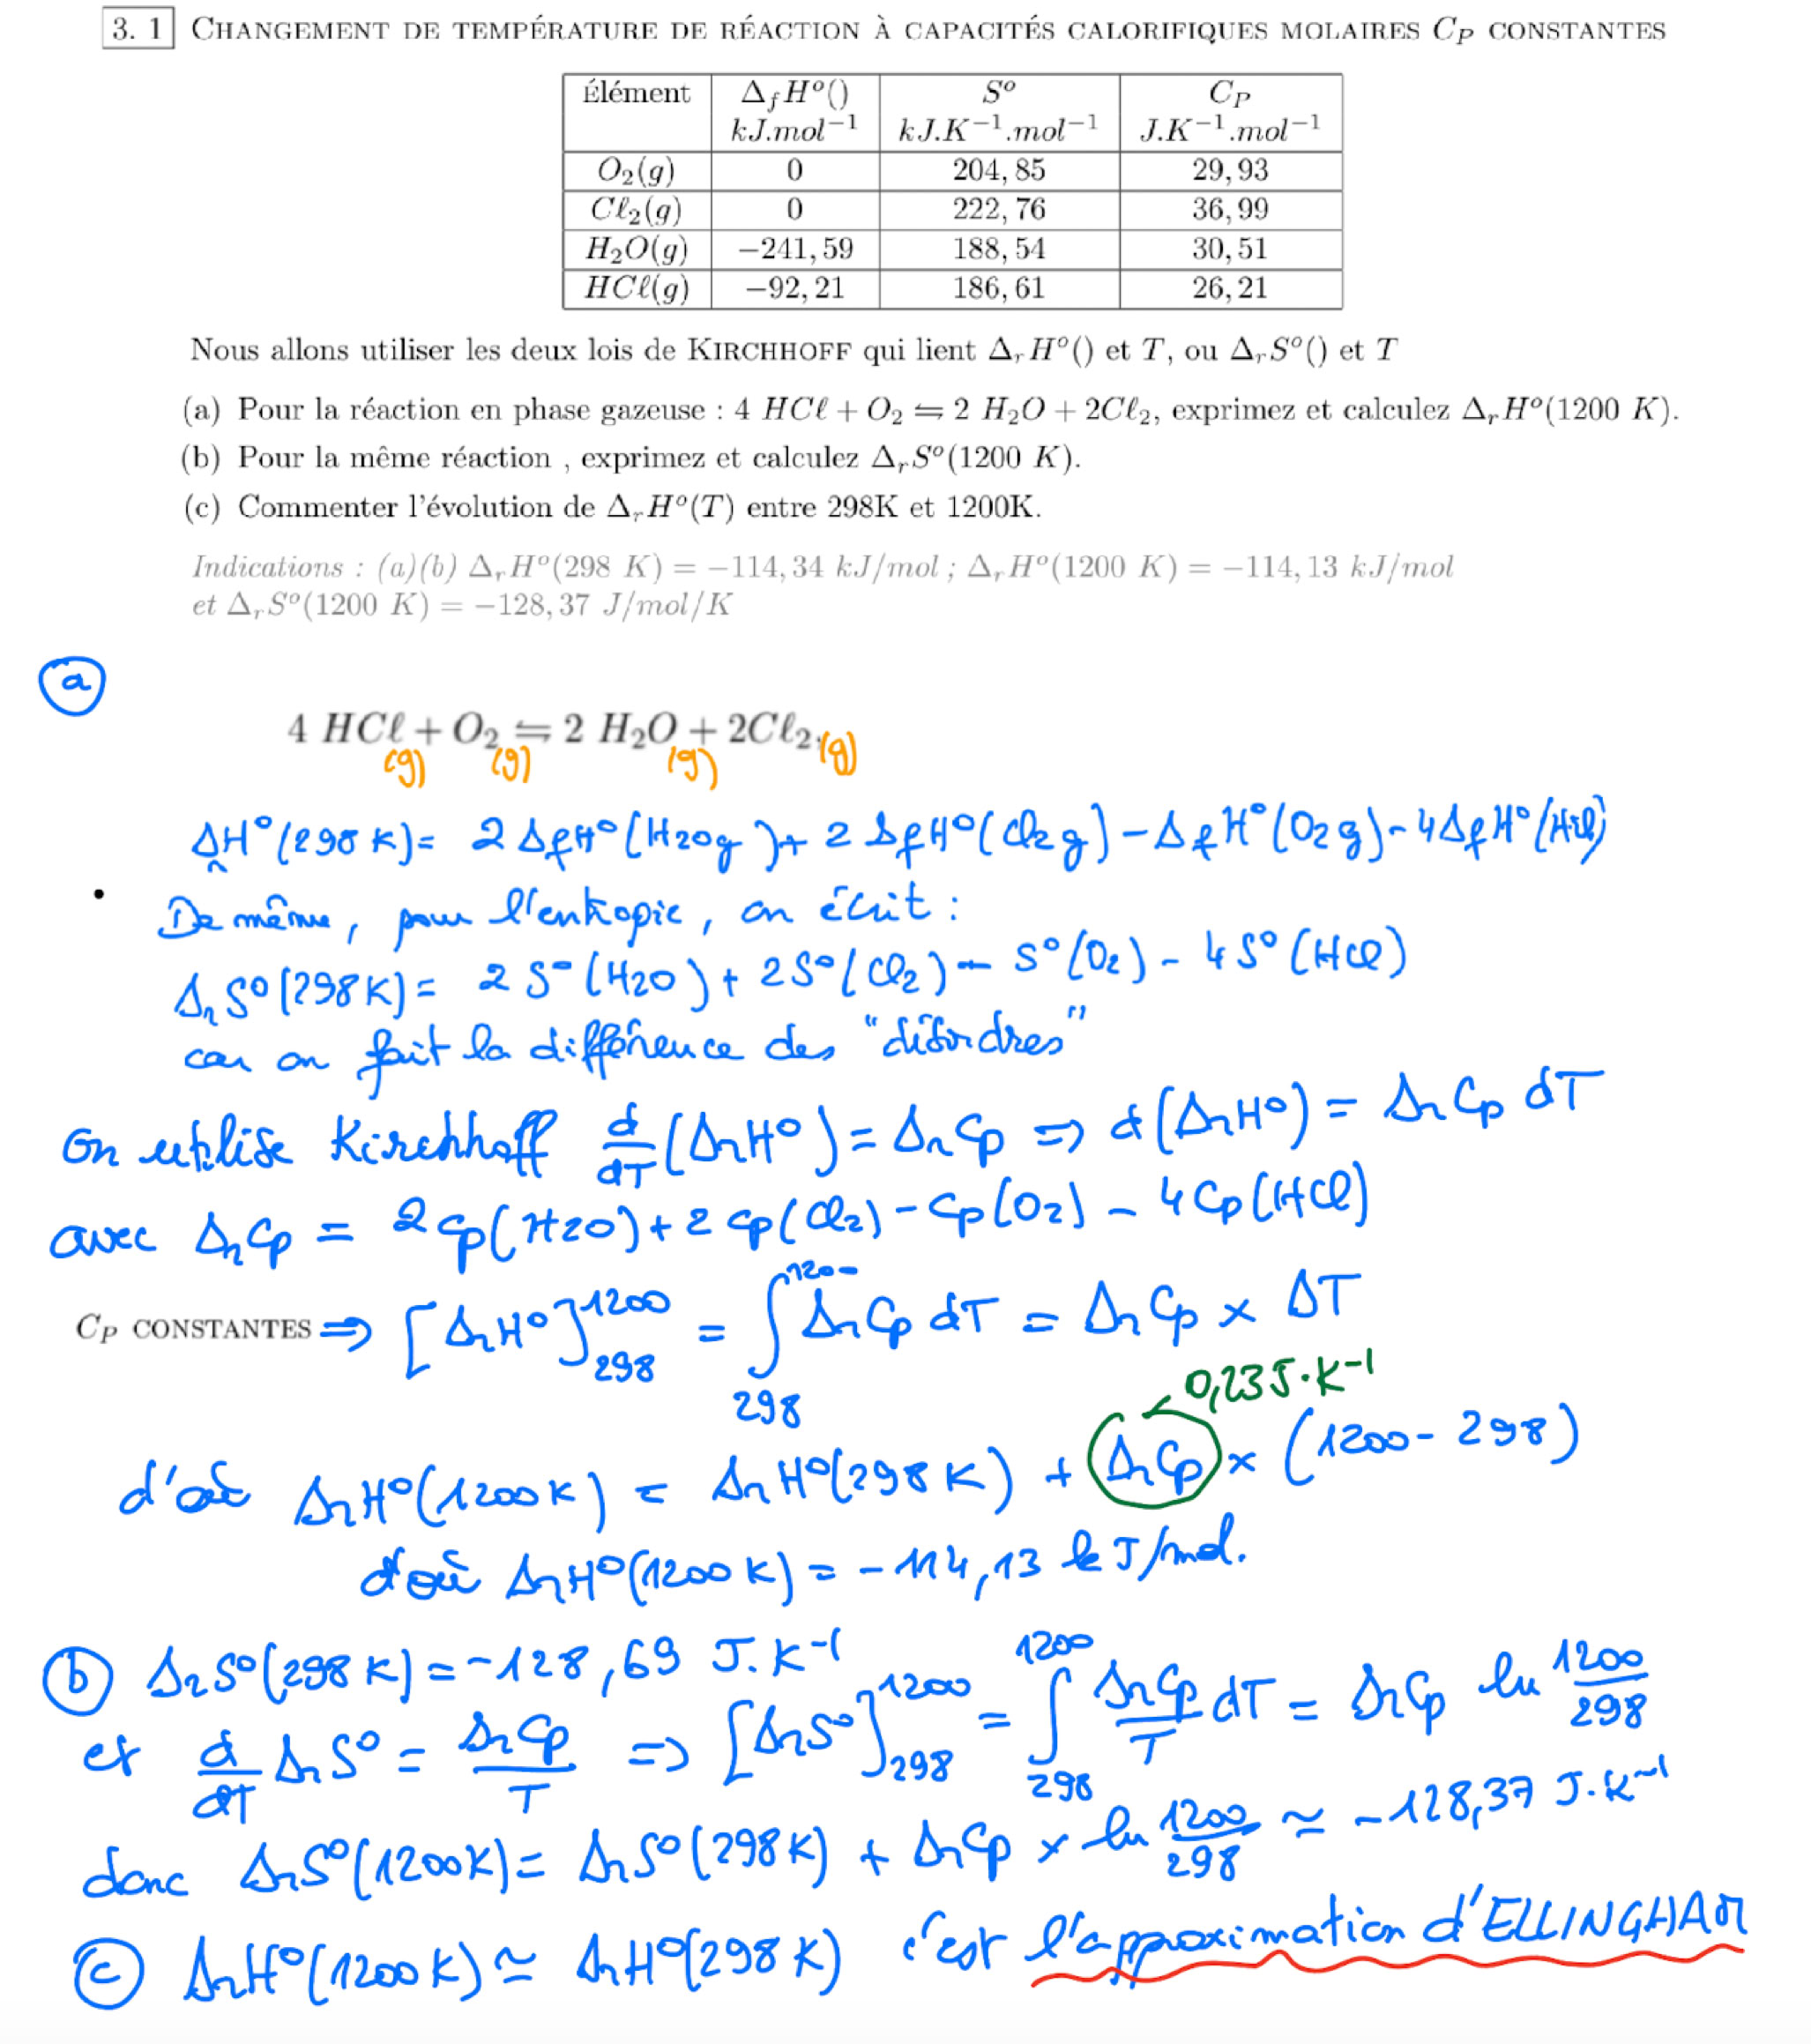 3. 1 CHANGEMENT DE TEMPÉRATURE DE RÉACTION À CAPACITÉS CALORIFIQUES MOLAIRES C_P CONSTANTES
Élément Δ_fH°() S° C_P
kJ.mol⁻¹ kJ.K⁻¹.mol⁻¹ J.K⁻¹.mol⁻¹
O₂(g) 0 204,85 29,93
Cℓ₂(g) 0 222,76 36,99
H₂O(g) −241,59 188,54 30,51
HCℓ(g) −92,21 186,61 26,21
Nous allons utiliser les deux lois de KIRCHHOFF qui lient Δ_rH°() et T, ou Δ_rS°() et T
(a) Pour la réaction en phase gazeuse : 4 HCℓ + O₂ ⇋ 2 H₂O + 2Cℓ₂, exprimez et calculez Δ_rH°(1200 K).
(b) Pour la même réaction , exprimez et calculez Δ_rS°(1200 K).
(c) Commenter l'évolution de Δ_rH°(T) entre 298K et 1200K.
Indications : (a)(b) Δ_rH°(298 K) = −114,34 kJ/mol ; Δ_rH°(1200 K) = −114,13 kJ/mol
et Δ_rS°(1200 K) = −128,37 J/mol/K
(a)
4 HCℓ + O₂ ⇋ 2 H₂O + 2Cℓ₂,
(g) (g) (g) (g)
Δ_rH°(298K) = 2 Δ_fH°(H₂Og) + 2 Δ_fH°(Cl₂g) − Δ_fH°(O₂g) − 4Δ_fH°(HCl)
• De même, pour l'entropie, on écrit :
Δ_rS°(298K) = 2 S°(H₂O) + 2S°(Cl₂) − S°(O₂) − 4S°(HCl)
car on fait la différence des "désordres"
On utilise Kirchhoff d/dT (Δ_rH°) = Δ_rCp ⇒ d(Δ_rH°) = Δ_rCp dT
avec Δ_rCp = 2Cp(H₂O) + 2Cp(Cl₂) − Cp(O₂) − 4Cp(HCl)
C_P CONSTANTES ⇒ [Δ_rH°]₂₉₈¹²⁰⁰ = ∫₂₉₈¹²⁰⁰ Δ_rCp dT = Δ_rCp × ΔT
0,23 J·K⁻¹
d'où Δ_rH°(1200K) = Δ_rH°(298K) + Δ_rCp × (1200 − 298)
d'où Δ_rH°(1200K) = −114,13 kJ/mol.
(b) Δ_rS°(298K) = −128,69 J.K⁻¹
et d/dT Δ_rS° = Δ_rCp/T ⇒ [Δ_rS°]₂₉₈¹²⁰⁰ = ∫₂₉₈¹²⁰⁰ Δ_rCp/T dT = Δ_rCp ln 1200/298
donc Δ_rS°(1200K) = Δ_rS°(298K) + Δ_rCp × ln 1200/298 ≃ −128,37 J.K⁻¹
(c) Δ_rH°(1200K) ≃ Δ_rH°(298K) c'est l'approximation d'ELLINGHAM